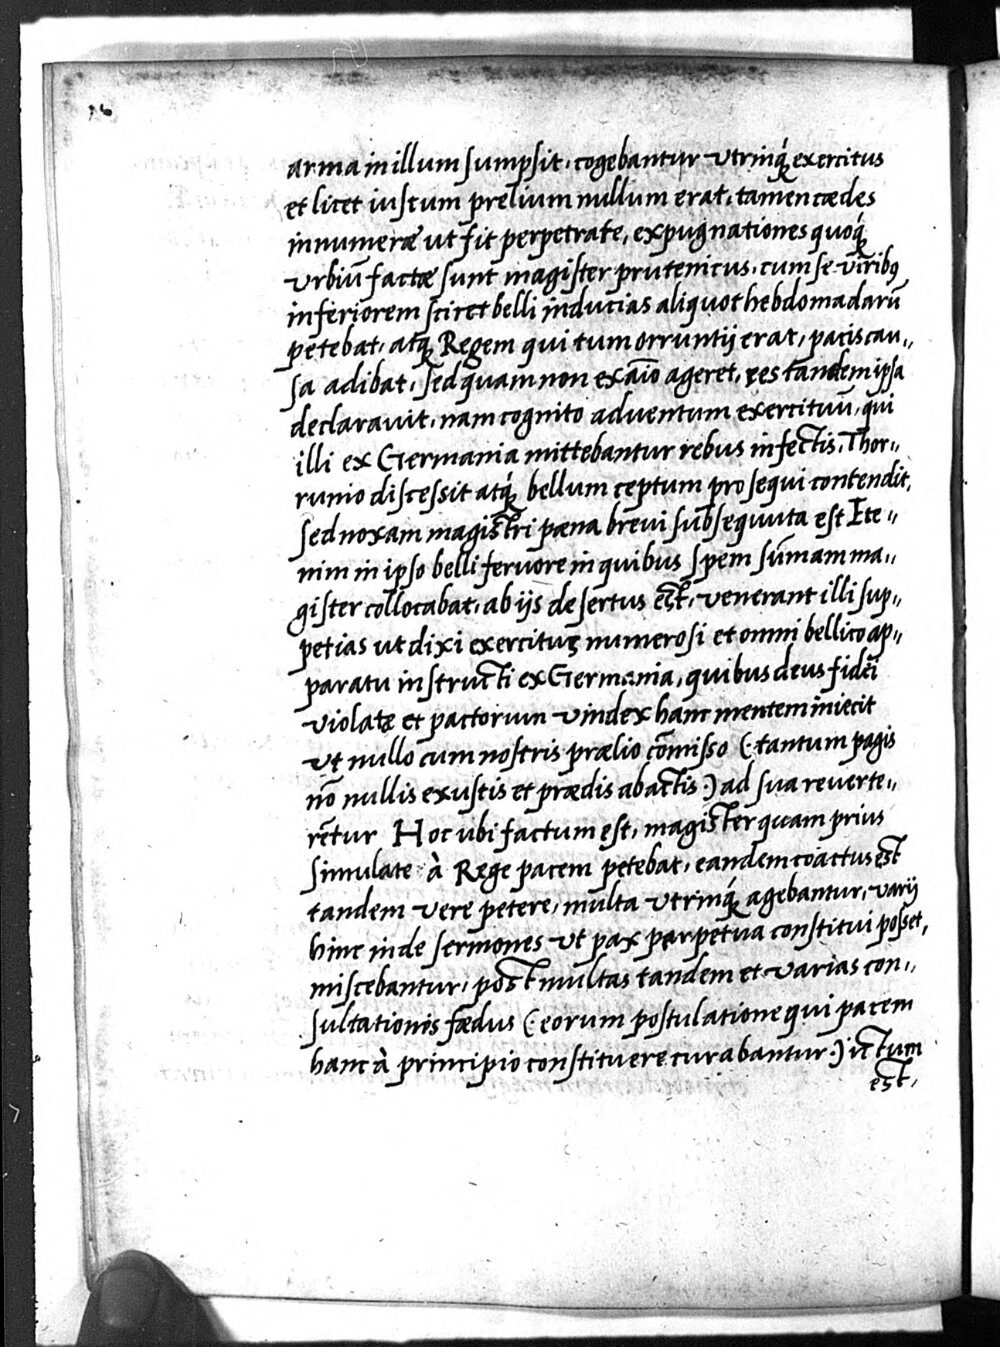 16
arma in illum sumpsit, cogebantur utrinq́ exercitus
et licet iustum prelium nullum erat, tamen cædes
innumeræ ut fit perpetratę, expugnationes quoq́
urbiū factæ sunt magister prutenicus, cum se viribꝰ
inferiorem sciret belli inducias aliquot hebdomadarū
petebat, atq́ Regem qui tum orruntij erat, pacis cau,,
sa adibat, sed quam non ex aīo ageret, res tandem ipsa
declaravit, nam cognito adventum exercituū, qui
illi ex Germania mittebantur rebus infectis, Thor,,
runio discessit atq́ bellum ceptum prosequi contendit,
sed noxam magistri pæna brevi subsequuta est Ete,,
nim in ipso belli fervore in quibus spem sūmam ma,,
gister collocabat, ab ijs desertus est, venerant illi sup,,
petias ut dixi exercitus numerosi et omni bellico ap,,
paratu instructi ex Germania, quibus deus fidei
violatę et pactorum vindex hanc mentem iniecit
ut nullo cum nostris prælio cōmisso (: tantum pagis
nō nullis exustis et prædis abactis :) ad sua reverte,,
rētur Hoc ubi factum est, magister quam prius
simulate à Rege pacem petebat, eandem coactus est
tandem vere petere, multa utrinq́ agebantur, varij
hinc inde sermones ut pax perpetua constitui posset,
miscebantur, post multas tandem et varias con,,
sultationis fædus (: eorum postulatione qui pacem
hanc à principio constituere curabantur :) ictum
est,